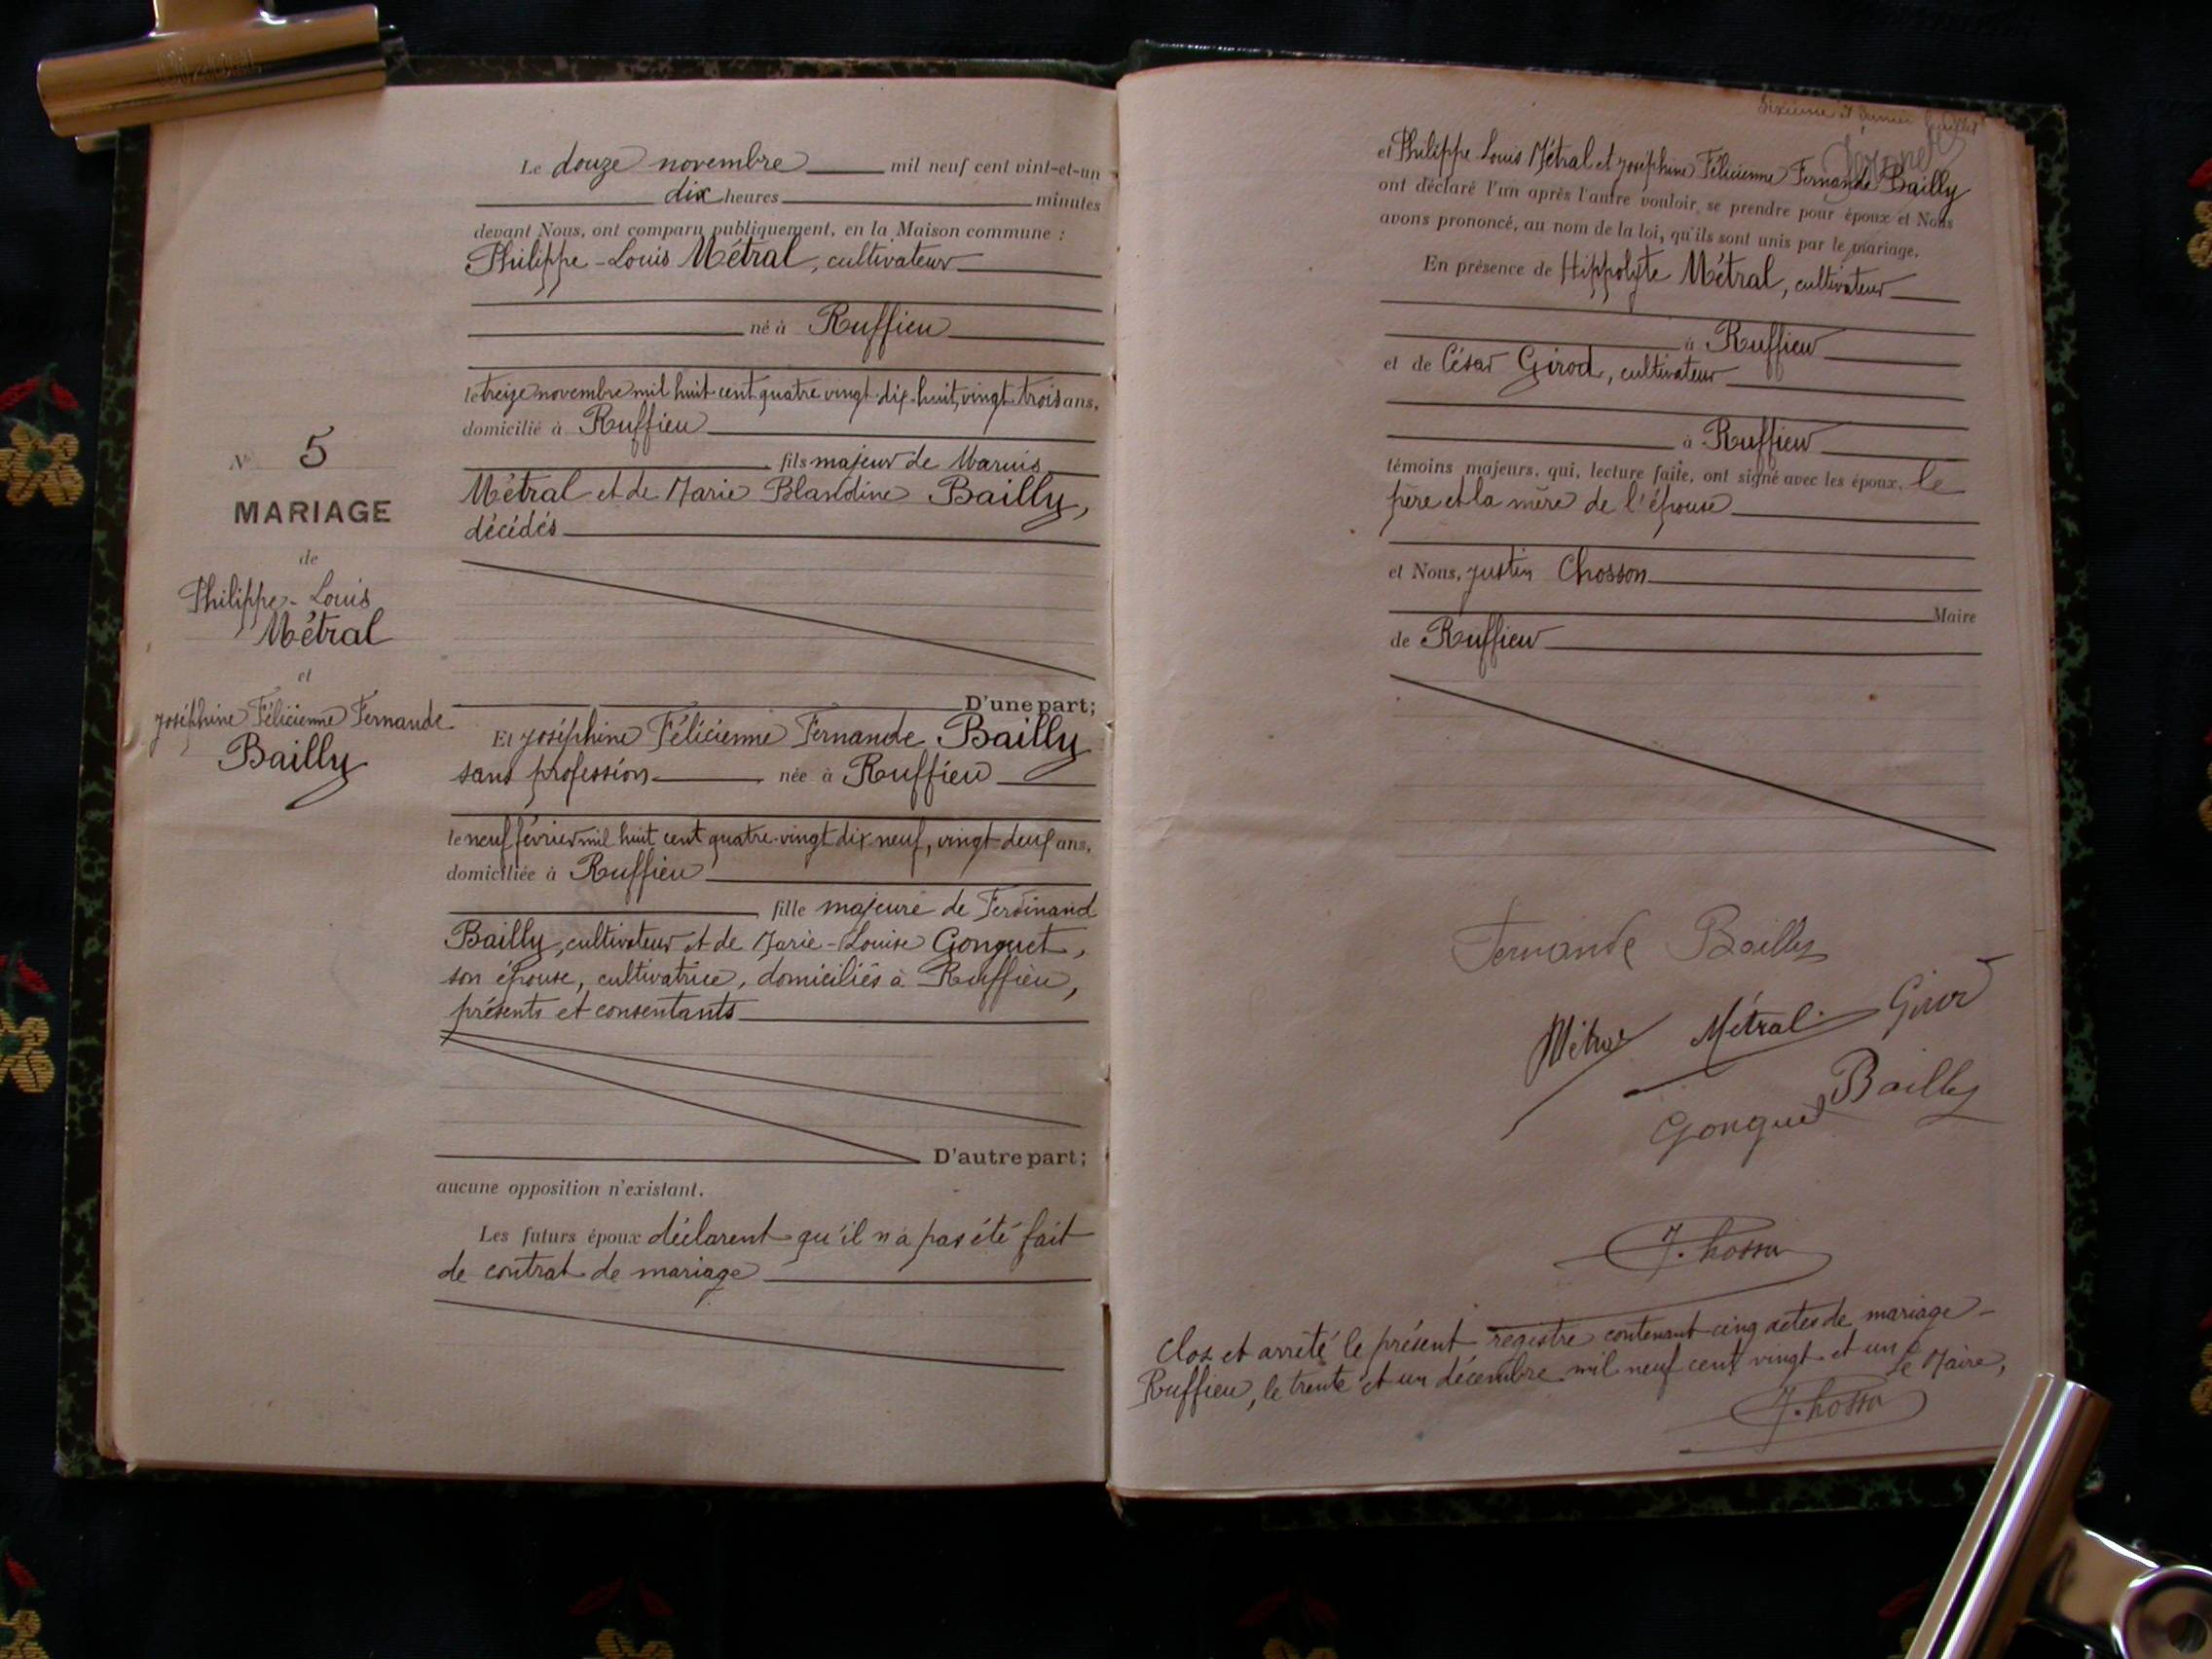 N° 5
MARIAGE
de
Philippe-Louis
Métral
et
Joséphine Félicienne Fernande
Bailly
Le douze novembre mil neuf cent vint-et-un
dix heures minutes
devant Nous, ont comparu publiquement, en la Maison commune :
Philippe-Louis Métral, cultivateur
né à Ruffieu
le treize novembre mil huit cent quatre vingt dix-huit, vingt trois ans,
domicilié à Ruffieu
fils majeur de Marius
Métral et de Marie Blandine Bailly,
décédés
D'une part;
Et Joséphine Félicienne Fernande Bailly
sans profession née à Ruffieu
le neuf février mil huit cent quatre-vingt dix neuf, vingt-deux ans,
domiciliée à Ruffieu
fille majeure de Ferdinand
Bailly, cultivateur et de Marie-Louise Gonguet,
son épouse, cultivatrice, domiciliés à Ruffieu,
présents et consentants
D'autre part;
aucune opposition n'existant.
Les futurs époux déclarent qu'il n'a pas été fait
de contrat de mariage
Sixième et dernier feuillet
et Philippe Louis Métral et Joséphine Félicienne Fernande Bailly
ont déclaré l'un après l'autre vouloir se prendre pour époux et Nous
avons prononcé, au nom de la loi, qu'ils sont unis par le mariage.
En présence de Hippolyte Métral, cultivateur
à Ruffieu
et de César Girod, cultivateur
à Ruffieu
témoins majeurs, qui, lecture faite, ont signé avec les époux, le
père et la mère de l'épouse
et Nous, Justin Chosson
Maire
de Ruffieu
Fernande Bailly
Métral Métral Girod
Gonguet Bailly
J. Chosson
Clos et arrêté le présent registre contenant cinq actes de mariage
Ruffieu, le trente et un décembre mil neuf cent vingt et un Le Maire,
J. Chosson